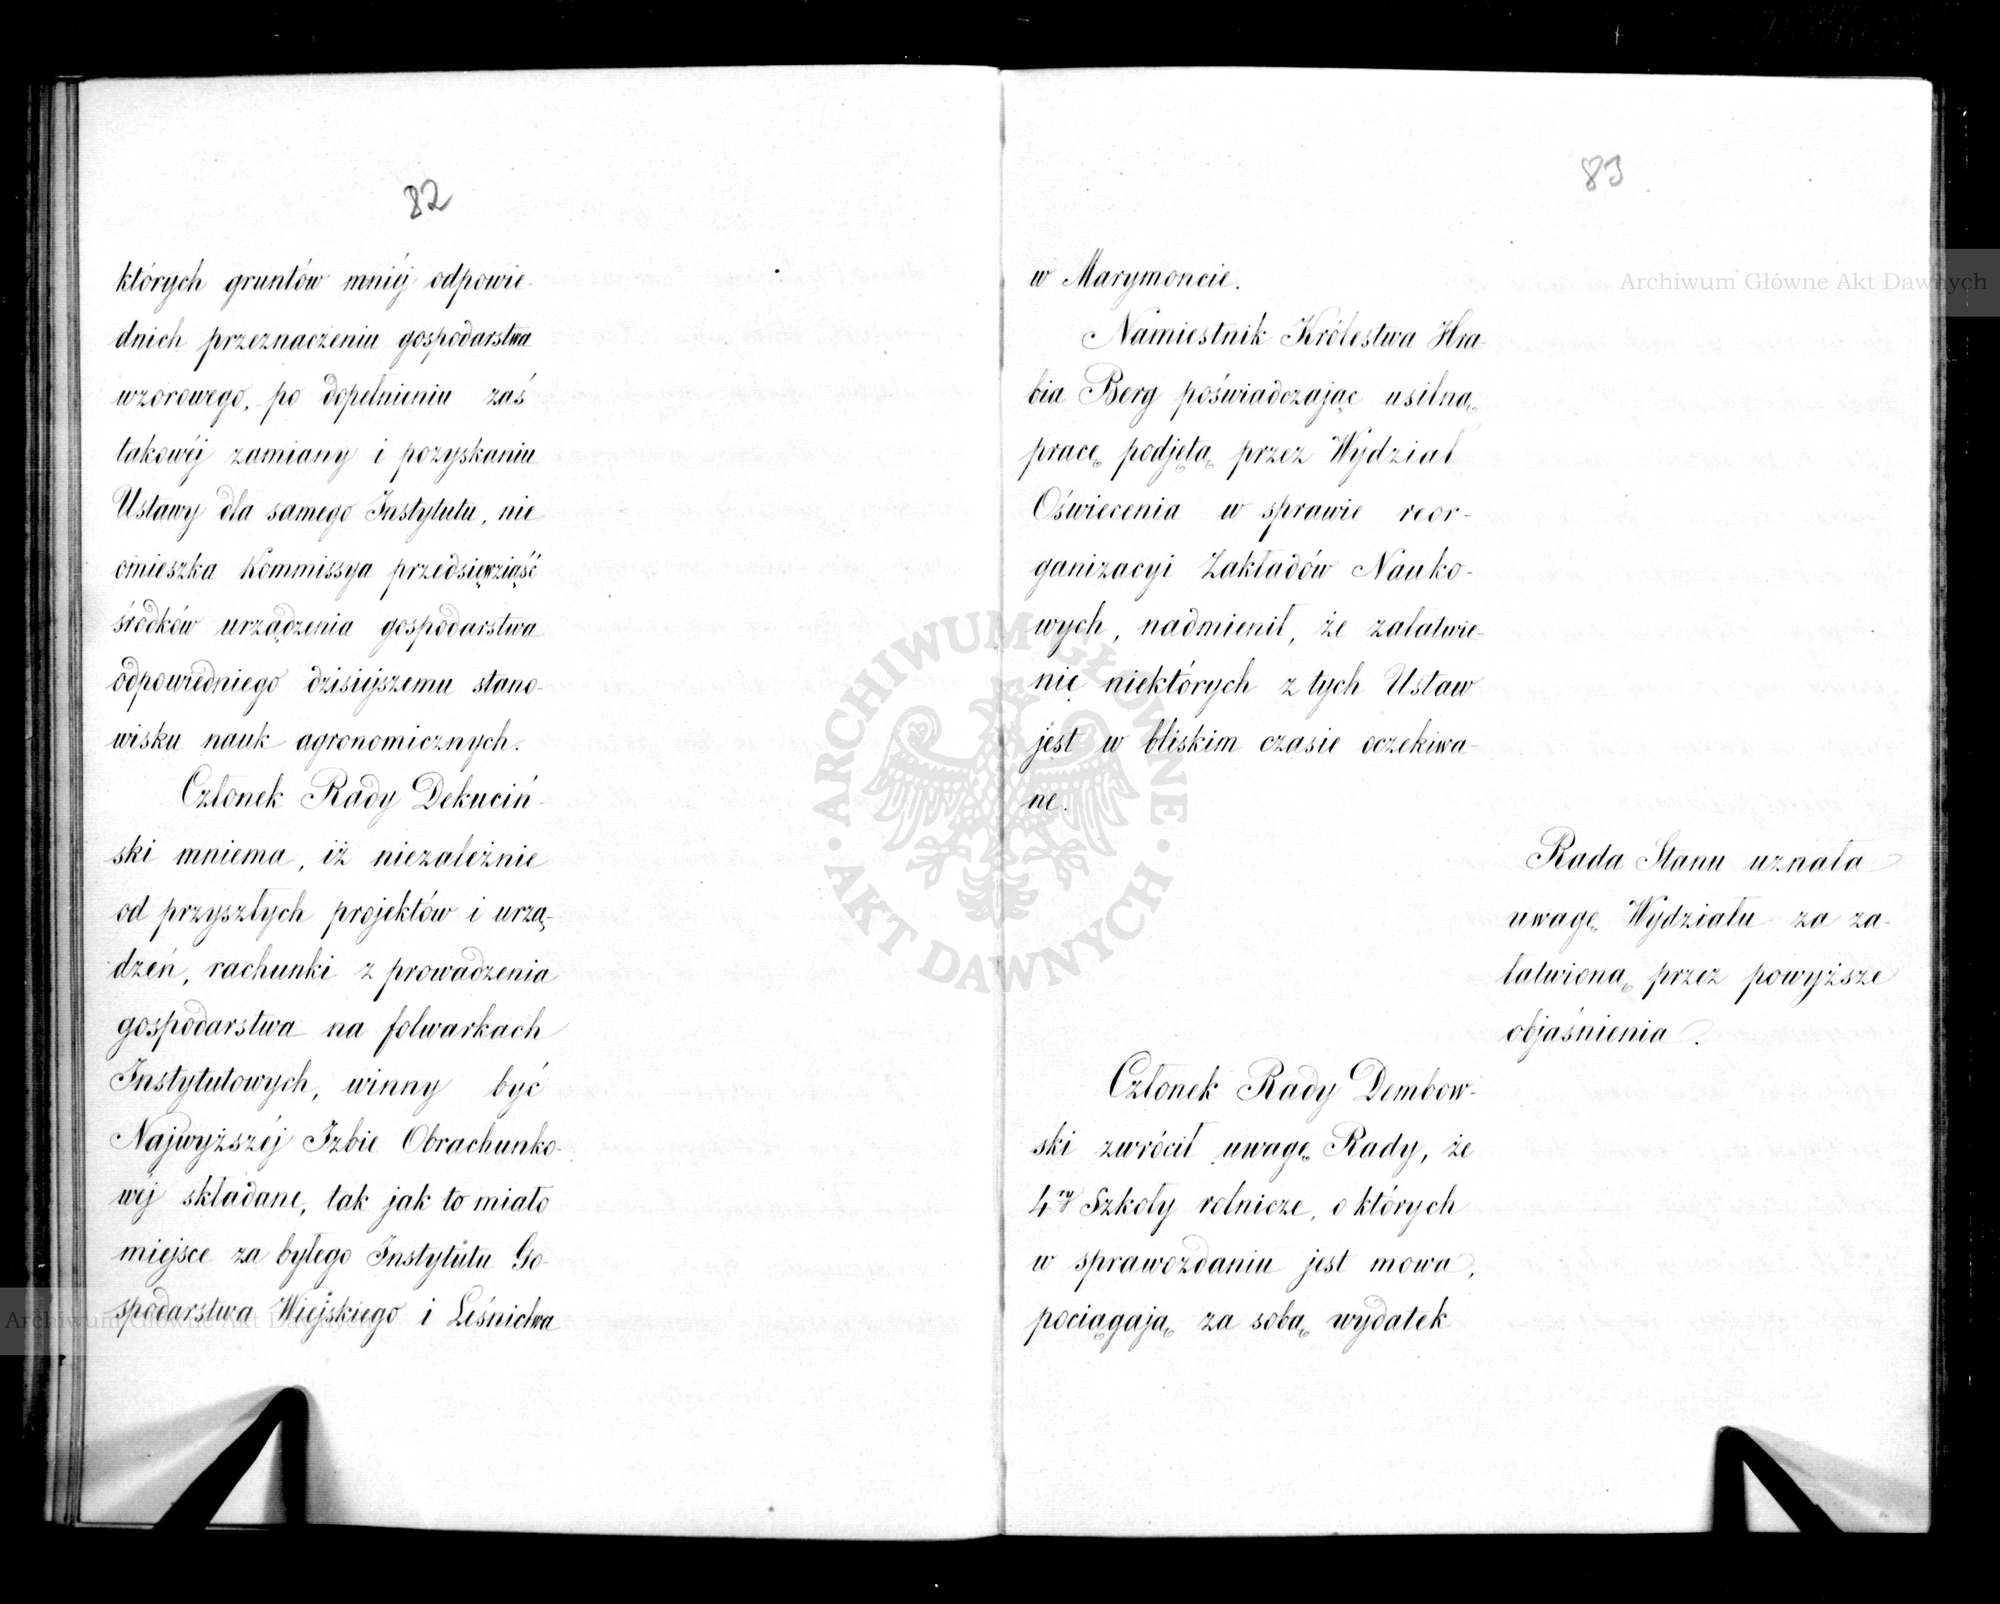 82
których gruntów mniéj odpowie-
dnich przeznaczeniu gospodarstwa
wzorowego, po dopełnieniu zaś
takowéj zamiany i pozyskaniu
Ustawy dla samego Instytutu, nie
omieszka Kommissya przedsięwziąść
środków urządzenia gospodarstwa
odpowiedniego dzisiejszemu stano-
wisku nauk agronomicznych.
Członek Rady Dekuciń-
ski mniema, iż niezależnie
od przyszłych projektów i urzą-
dzeń, rachunki z prowadzenia
gospodarstwa na folwarkach
Instytutowych, winny być
Najwyższéj Izbie Obrachunko-
wéj składane, tak jak to miało
miejsce za byłego Instytutu Go-
spodarstwa Wiejskiego i Leśnictwa
83
w Marymoncie.
Namiestnik Królestwa Hra-
bia Berg poświadczając usilną
pracę podjętą przez Wydział
Oświecenia w sprawie reor-
ganizacyi Zakładów Nauko-
wych, nadmienił, że załatwie-
nie niektórych z tych Ustaw
jest w bliskim czasie oczekiwa-
ne.
Rada Stanu uznała
uwagę Wydziału za za-
łatwioną przez powyższe
objaśnienia.
Członek Rady Dembow-
ski zwrócił uwagę Rady, że
4ry Szkoły rolnicze, o których
w sprawozdaniu jest mowa,
pociągają za sobą wydatek
Archiwum Główne Akt Dawnych
ARCHIWUM GŁÓWNE
AKT DAWNYCH
Archiwum Główne Akt Dawnych